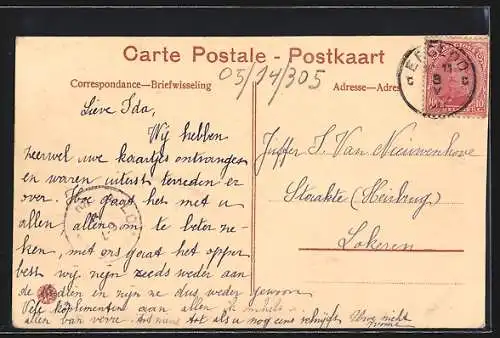 Carte Postale - Postkaart
05/14/305
Correspondance—Briefwisseling
Adresse—Adres
EECLOO
11
8
V
Lieve Ida,
Wij hebben
zeerwel uwe kaartjes ontvangen
en waren uiterst tevreden er
over. Hoe gaat het met u
allen, allen om te beter
ken, met ons gaat het opper
best wij zijn zeeds weder aan
de en zijn ze dus weder gewoon
Vele komplimenten aan allen
allen van verre. tot als u nog eens schrijft
Juffer I. Van Nieuwenhove
Storakte (Heirbrug)
Lokeren